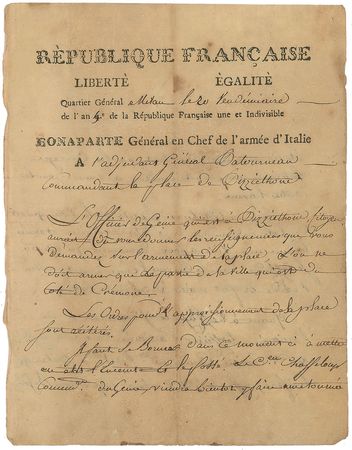 RÉPUBLIQUE FRANÇAISE
LIBERTÉ ÉGALITÉ
Quartier Général Milan le 20 Vendémiaire
de l'an 5e de la République Française une et Indivisible
BONAPARTE Général en Chef de l'armée d'Italie
A l'adjudant Général
Commandant la place de Pizzicthone
L'Officier de Génie qui est à Pizzicthone, citoyen
vous donner les renseignemens que vous
demandez sur l'armement de la place, L'on ne
doit armer que la partie de la ville qui est du
Coté de Crémone.
Les Ordres pour l'approvisionnement de la place
sont réitérés.
dans ce moment ci à mettre
en état l'Enceinte Le Cen Chasseloup
Commdt du Génie, viendra bientôt y faire une tournée